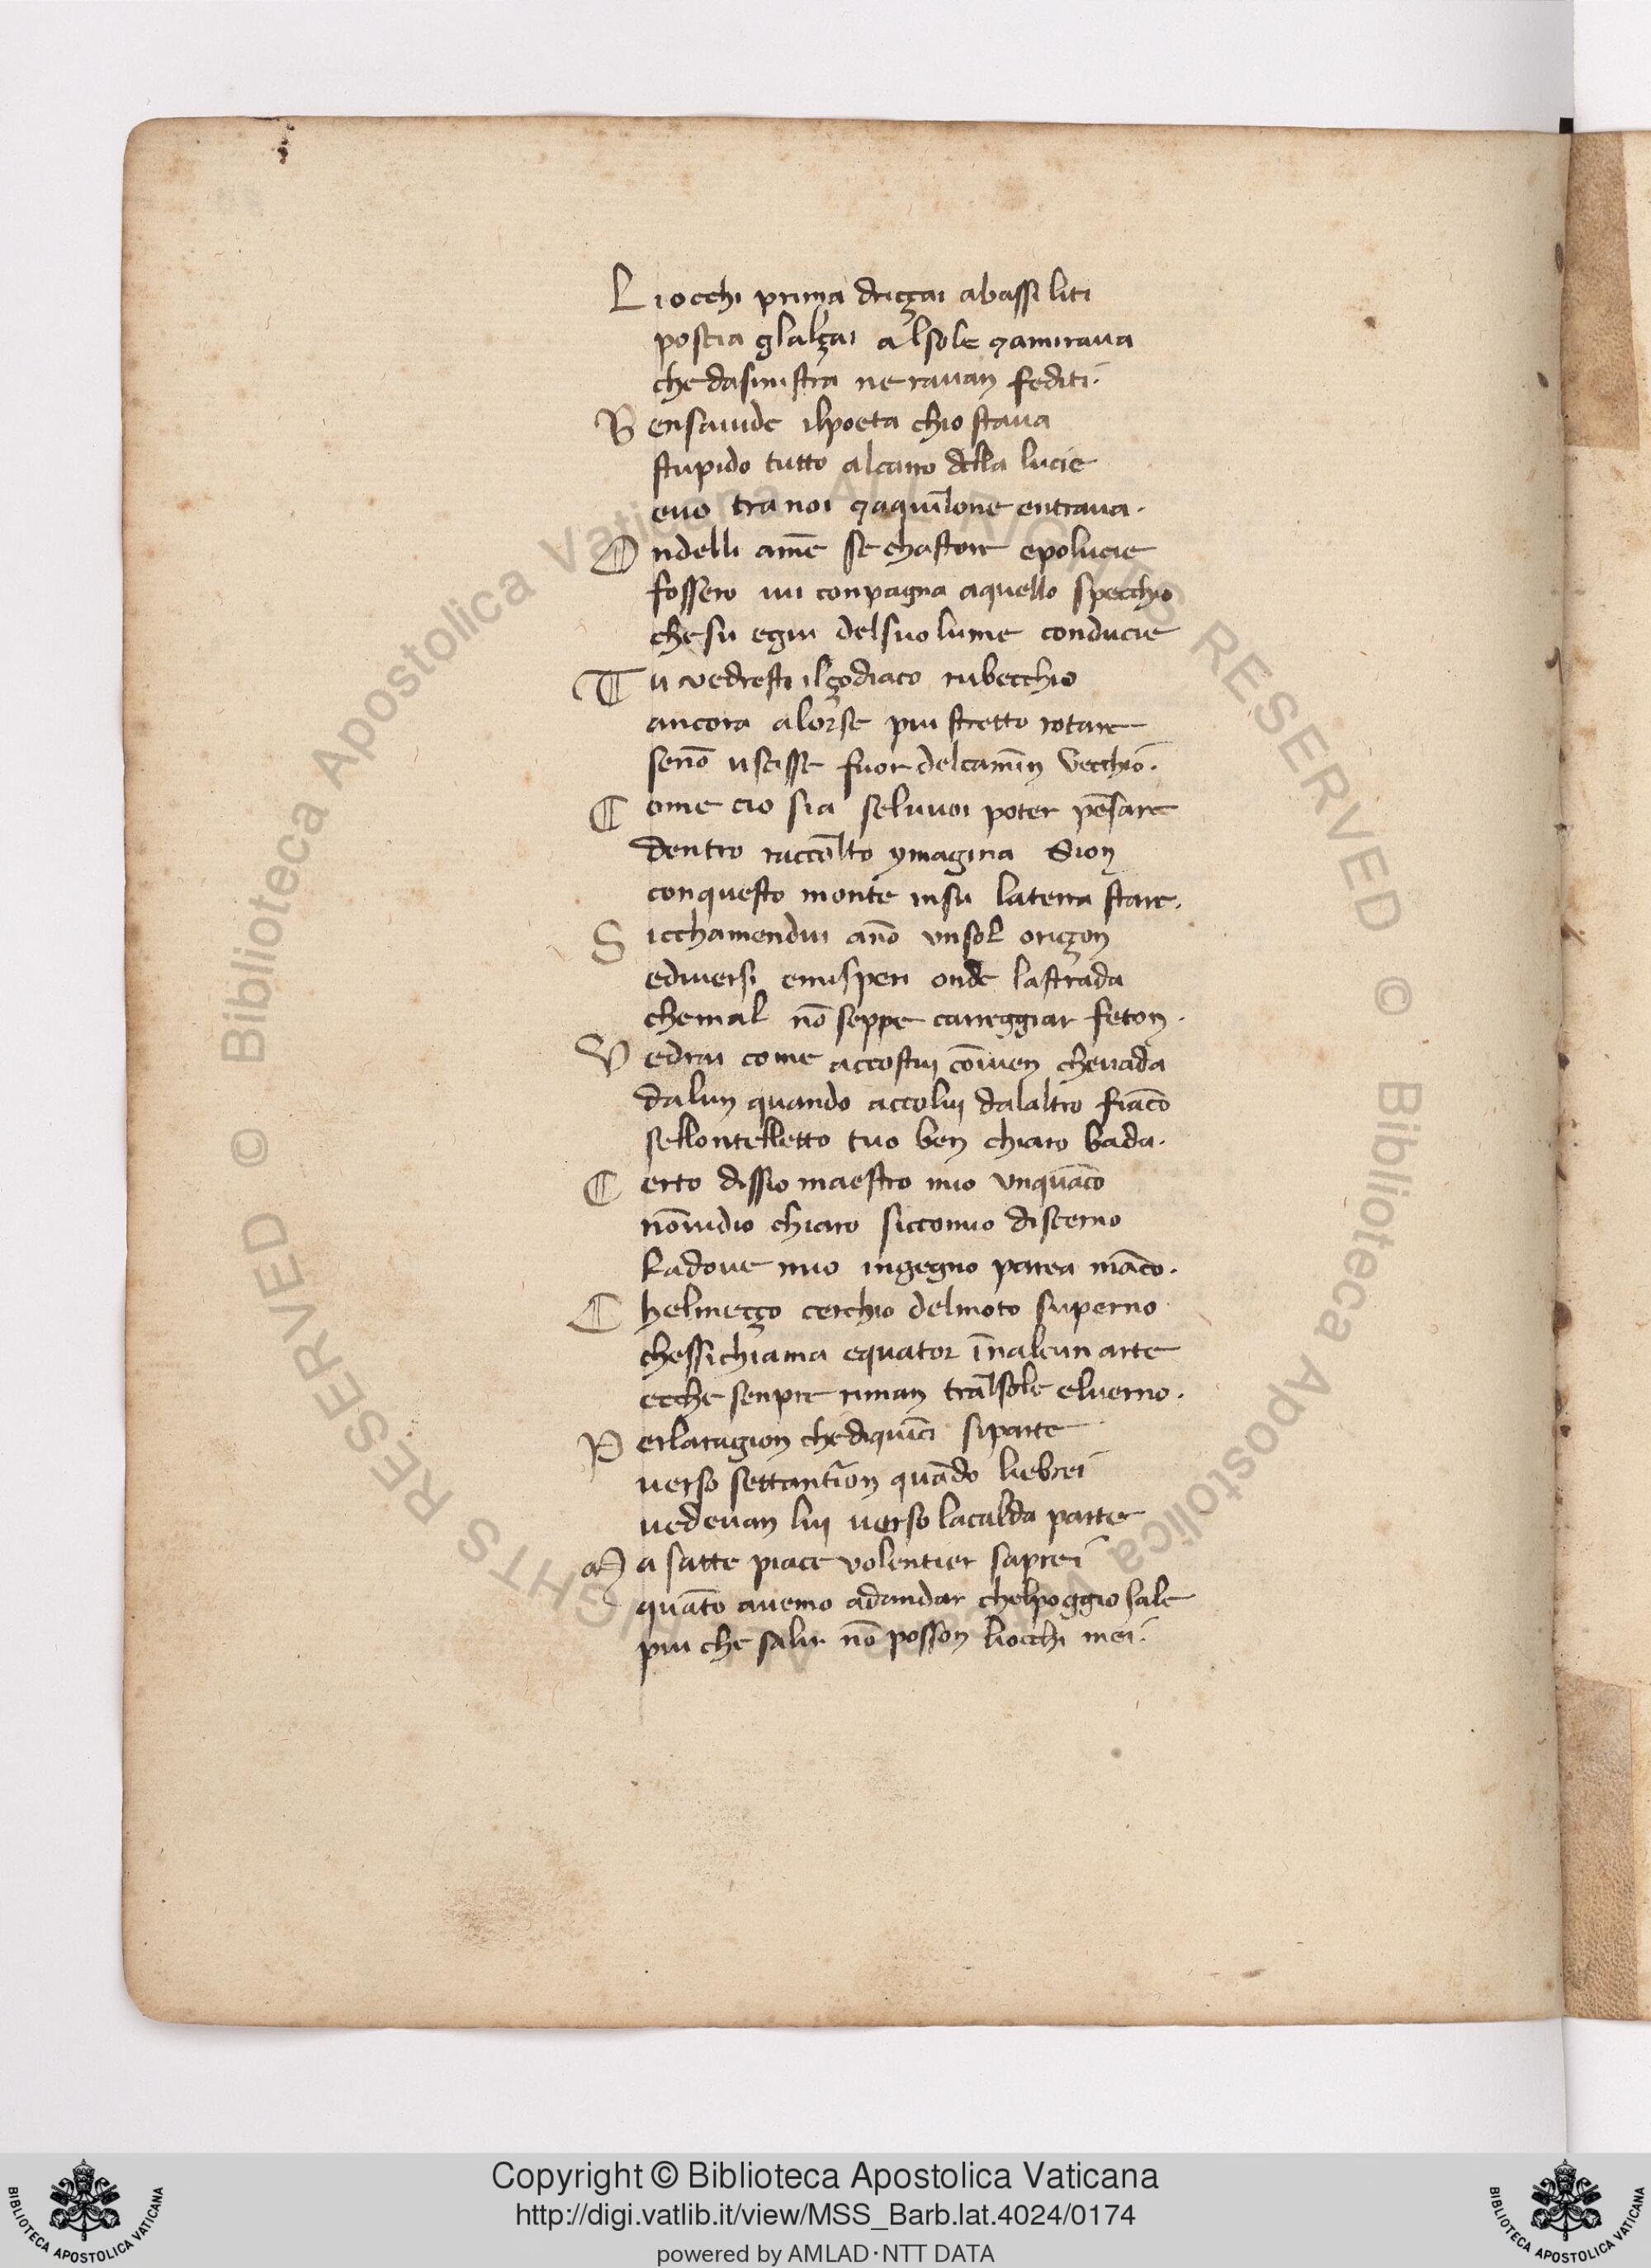 Liocchi prima dricçai abassi liti
poscia glalçai alsole çamiraua
che dasinistra nerauan fediti.
Bensauide ilpoeta chio staua
stupido tutto alcarro della lucie
euo tra noi çaquilone entraua.
Ondelli ame se chastore epolucie
fossero im conpagna aquello specchio
chesu egiu delsuo lume conducie
Tu uedresti ilçodiaco rubecchio
ancora alorse piu stretto rotare
seno uscisse fuor delcamin vecchio.
Come cio sia seluuoi poter pēsare
dentro raccolto ymagina Sion
conquesto monte insu laterra stare.
Sicchamendui ano vnsol oriçon
ediuersi emisperi onde lastrada
chemal nō seppe carreggiar feton.
Vedrai come accostui cōuien cheuada
dalun quando accolui dalaltro fiāco
sellontelletto tuo ben chiaro bada.
Certo dissio maestro mio vnquāco
nōuidio chiaro siccomio discerno
ladoue mio ingegno parea māco.
Chelmeçço cerchio delmoto superno
chessichiama equator īnalcun arte
ecche senpre riman tralsole eluerno.
Perlaragion chediquīci siparte
uerso settantrion quādo liebrei
uedeuan lui uerso lacalda parte
Ma satte piace volentier saprei
quāto auemo adandar chelpoggio sale
piu che salir nō posson liocchi mei.
© Biblioteca Apostolica Vaticana ALL RIGHTS RESERVED © Biblioteca Apostolica Vaticana ALL RIGHTS RESERVED
Copyright © Biblioteca Apostolica Vaticana
http://digi.vatlib.it/view/MSS_Barb.lat.4024/0174
powered by AMLAD·NTT DATA
BIBLIOTECA APOSTOLICA VATICANA
BIBLIOTECA APOSTOLICA VATICANA